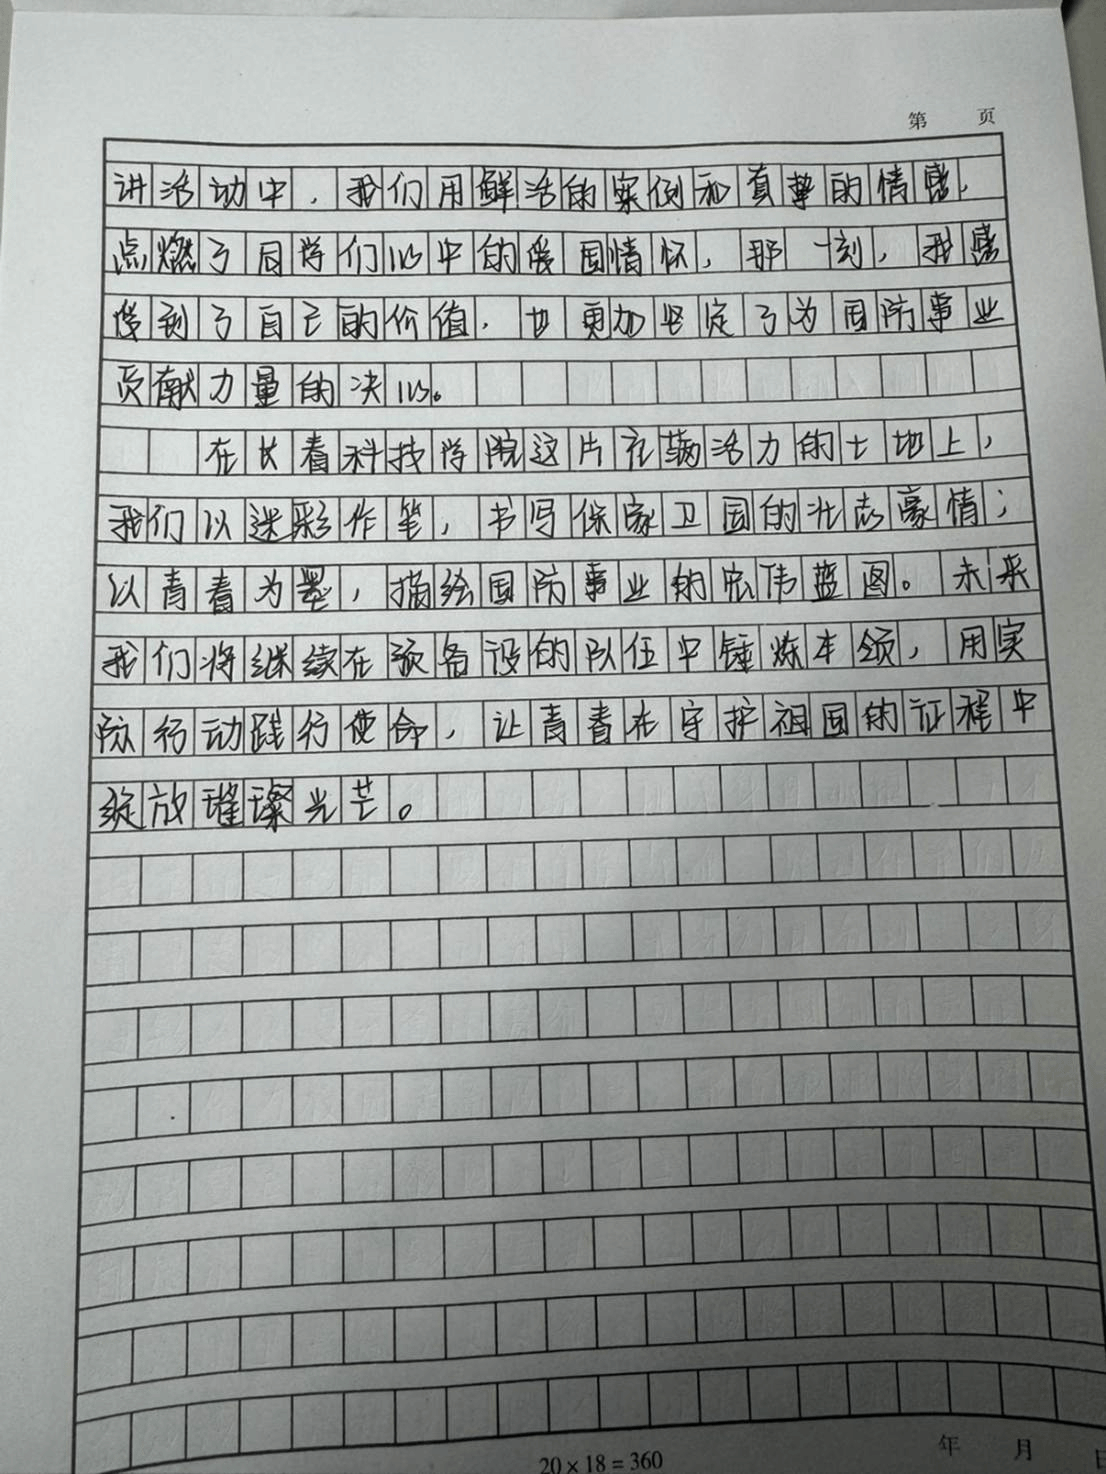 第 页
讲活动中，我们用鲜活的案例和真挚的情感，
点燃了同学们心中的爱国情怀，那一刻，我感
受到了自己的价值，也更加坚定了为国防事业
贡献力量的决心。
在长春科技学院这片充满活力的土地上，
我们以迷彩作笔，书写保家卫国的壮志豪情；
以青春为墨，描绘国防事业的宏伟蓝图。未来
我们将继续在预备役的队伍中锤炼本领，用实
际行动践行使命，让青春在守护祖国的征程中
绽放璀璨光芒。
20×18=360
年 月 日